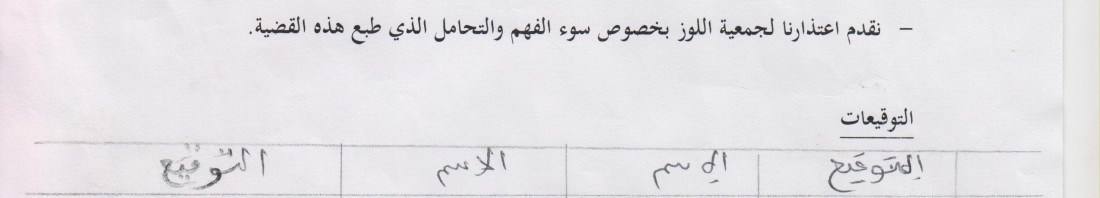 – نقدم اعتذارنا لجمعية اللوز بخصوص سوء الفهم والتحامل الذي طبع هذه القضية.
التوقيعات
التوقيع الاسم الاسم التوقيع